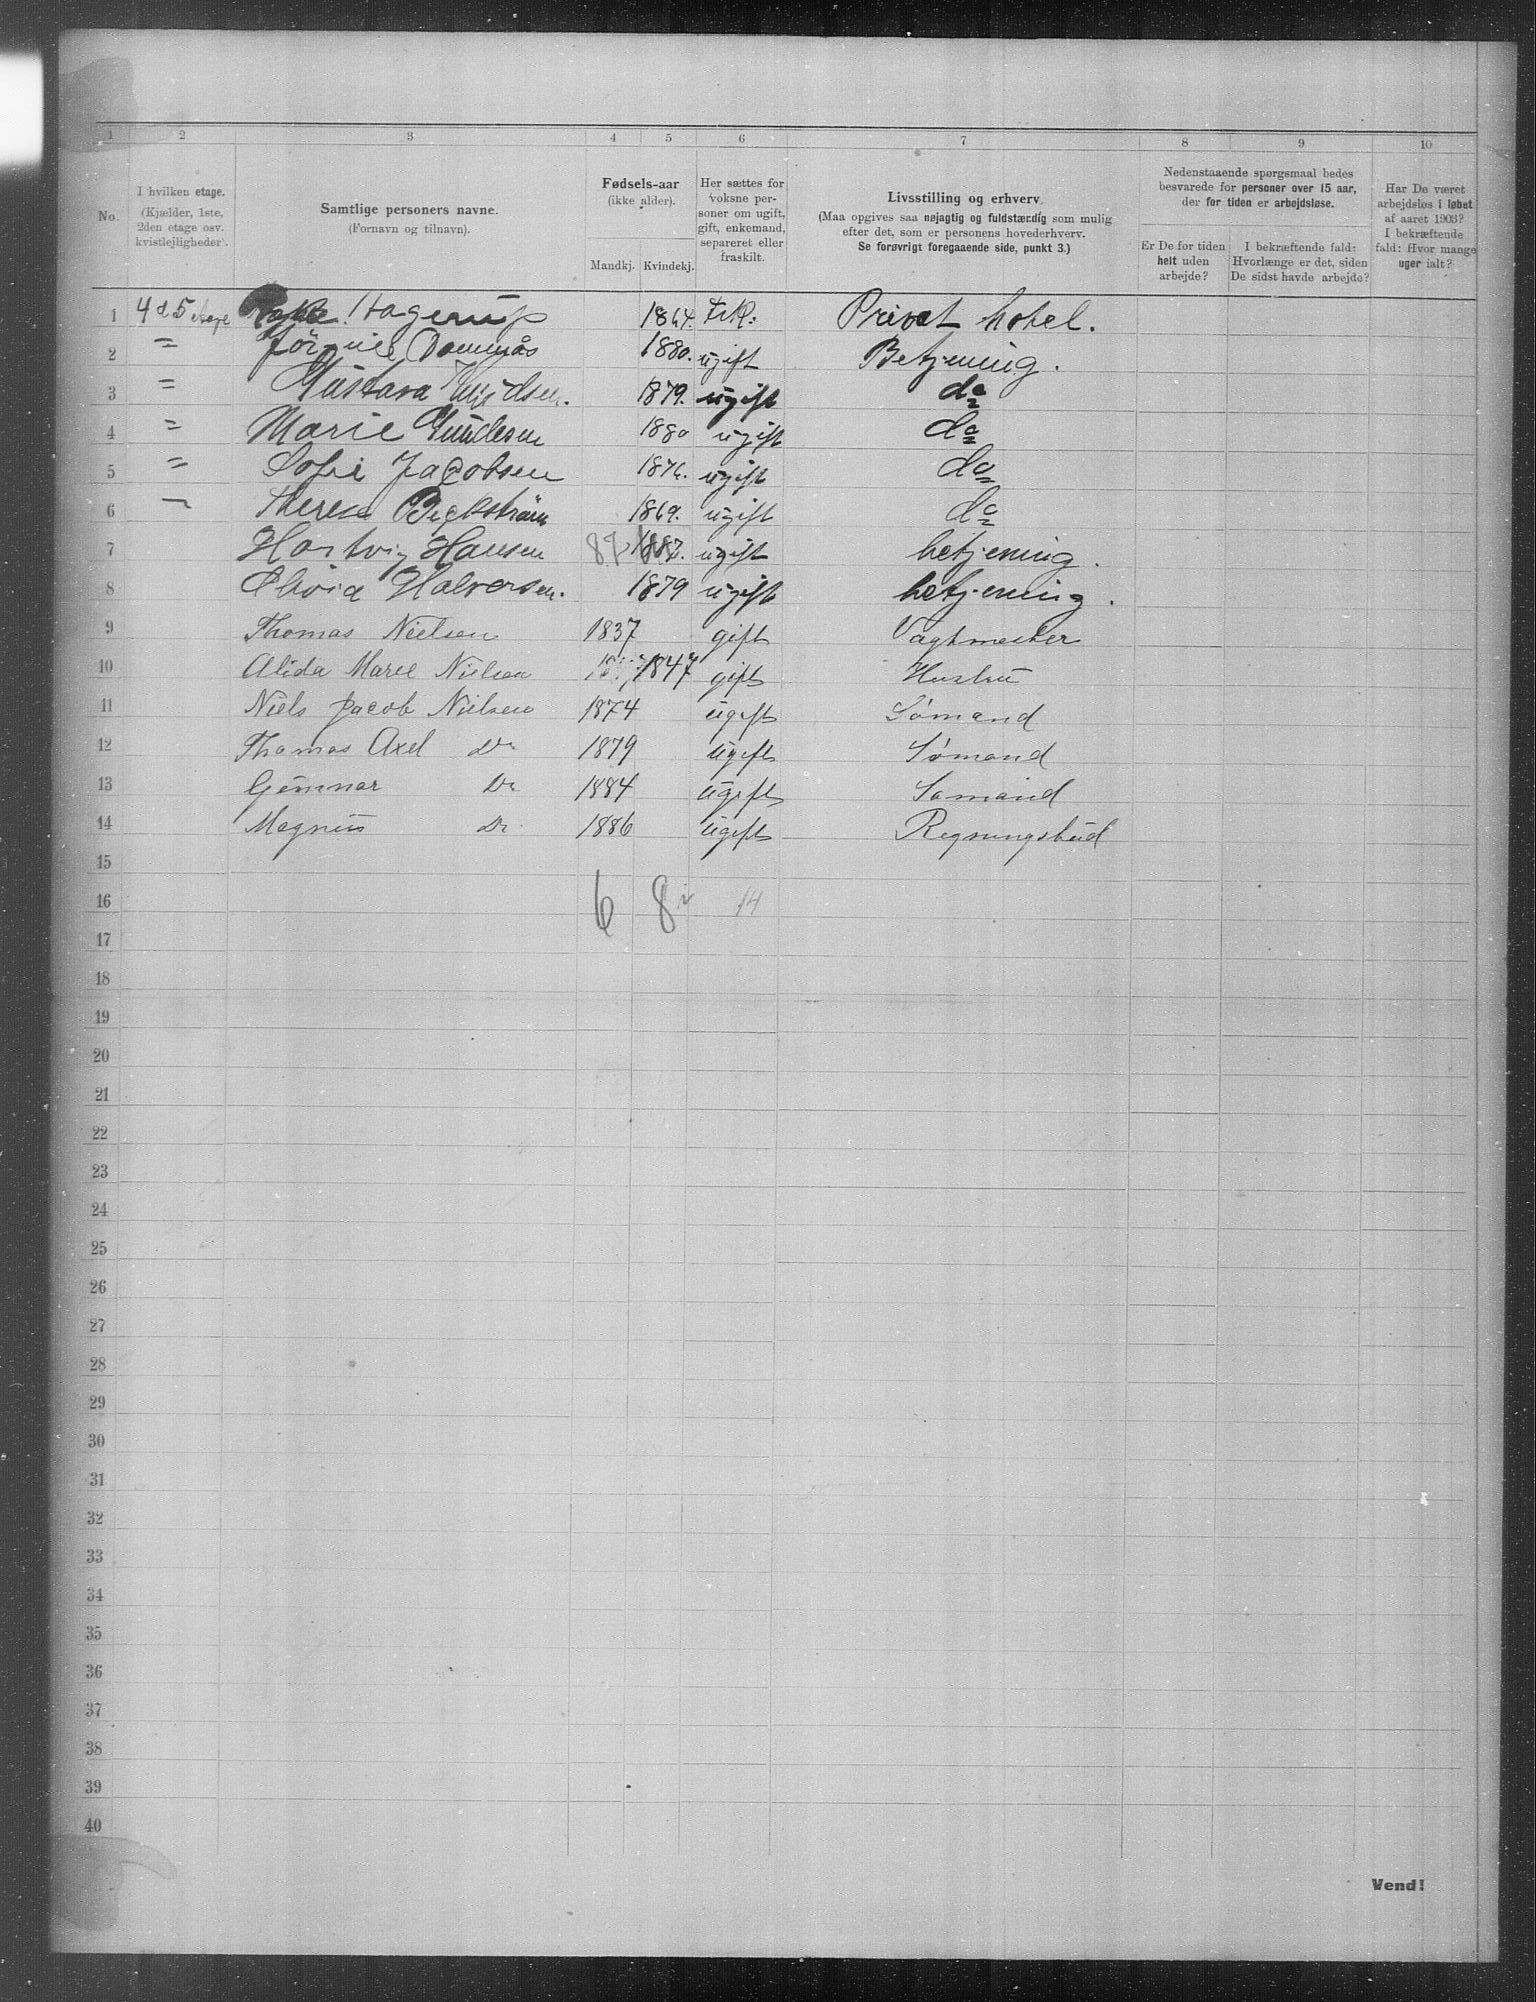 1 2 3 4 5 6 7 8 9 10
No.
I hvilken etage.
(Kjælder, 1ste,
2den etage osv.
kvistlejligheder).
Samtlige personers navne.
(Fornavn og tilnavn).
Fødsels-aar
(ikke alder).
Mandkj. Kvindekj.
Her sættes for
voksne per-
soner om ugift,
gift, enkemand,
separeret eller
fraskilt.
Livsstilling og erhverv.
(Maa opgives saa nøjagtig og fuldstændig som mulig
efter det, som er personens hovederhverv.
Se forøvrigt foregaaende side, punkt 3.)
Nedenstaaende spørgsmaal bedes
besvarede for personer over 15 aar,
der for tiden er arbejdsløse.
Er De for tiden
helt uden
arbejde?
I bekræftende fald:
Hvorlænge er det, siden
De sidst havde arbejde?
Har De været
arbejdsløs i løbet
af aaret 1903?
I bekræftende
fald: Hvor mange
uger ialt?
1 4 d 5 Hagerup 1864. Privat hotel.
2 " 1880. ugift Betjening.
3 " Gustava 1879. ugift do
4 " Marie Gundesen 1880 ugift do
5 " Sofie Jacobsen ugift do
6 " 1869. ugift do
7 Hartvig Hansen 87 ugift betjening.
8 Olivia Halvorsen. 1879 ugift betjening.
9 Thomas Nielsen 1837 gift Vagtmester
10 Alida Marie Nielsen 1847 gift Hustru
11 Niels Jacob Nielsen 1874 ugift Sømand
12 Thomas Axel Do 1879 ugift Sømand
13 Gunnar Do 1884 ugift Sømand
14 Magnus Do 1886 ugift Regningsbud
15
16 6 8 14
17
18
19
20
21
22
23
24
25
26
27
28
29
30
31
32
33
34
35
36
37
38
39
40
Vend!